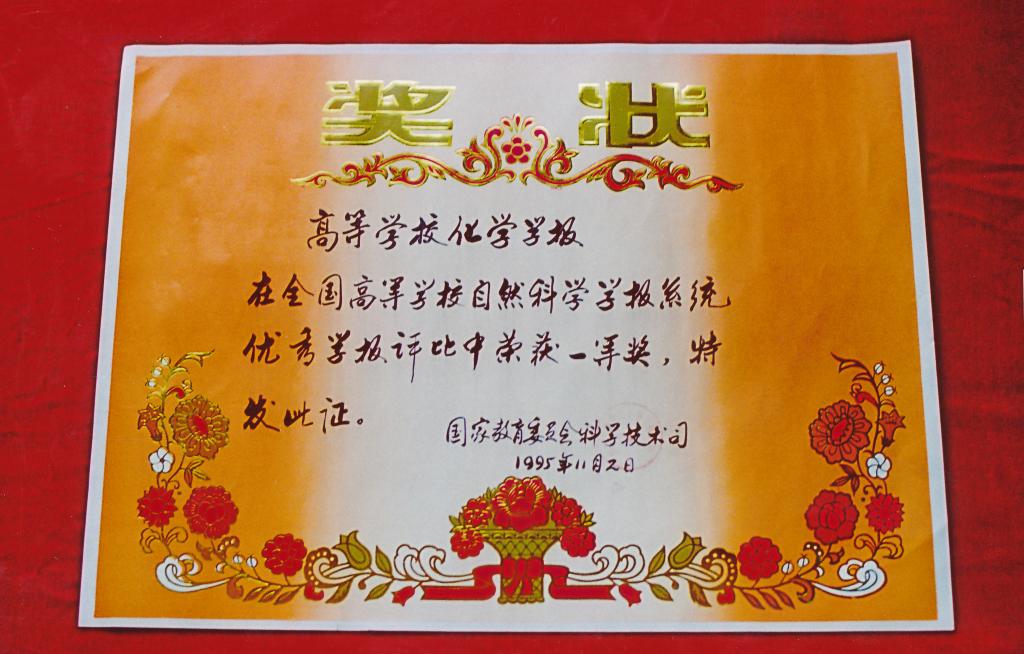 奖状
高等学校化学学报
在全国高等学校自然科学学报系统
优秀学报评比中荣获一等奖，特
发此证。
国家教育委员会科学技术司
1995年11月2日